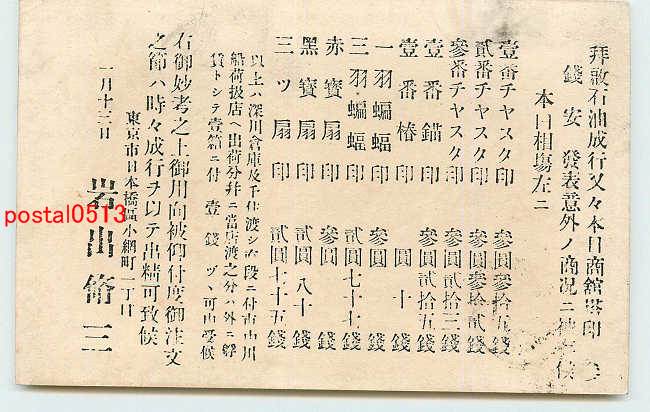 拜啟石油成行又々本日商舘塔印
錢安發表意外ノ商况ニ
本日相塲左ニ
壹番チヤスタ印 參圓參拾五錢
貳番チヤスタ印 參圓參拾貳錢
參番チヤスタ印 參圓貳拾三錢
壹番錨印 參圓貳拾五錢
壹番椿印 圓十錢
一羽蝙蝠印 參圓錢
三羽蝙蝠印 貳圓七十七錢
赤寳扇印 參圓錢
黑寳扇印 貳圓八十錢
三ツ扇印 貳圓七十五錢
以上ハ深川倉庫及千住渡シ直段ニ付市内川
船荷扱店ヘ出荷分幷ニ當店渡之分ハ外ニ艀
賃トシテ壹箱ニ付壹錢ヅヽ可申受候
右御妙考之上御用向被仰付度御注文
之節ハ時々成行ヲ以テ出精可致候
東京市日本橋區小網町一丁目
一月十三日 岩出
postal0513